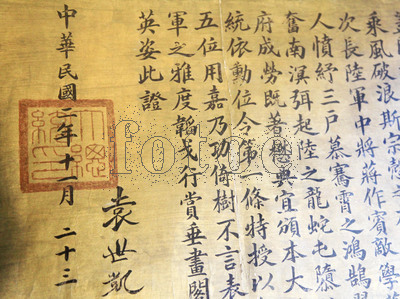 乘風破浪斯宗愨之
次長陸軍中將蔣作賓敵學
人憤紓三戶慕騫霄之鴻鵠
奮南溟弭起陸之龍蛇屯隨
府成勞既著懋典宜頒本大
統依勳位令第一條特授以
五位用嘉乃功倚樹不言表
軍之雅度韜戈行賞垂畫閣
英姿此證
中華民國二年十一月二十三
袁世凱
大總統印